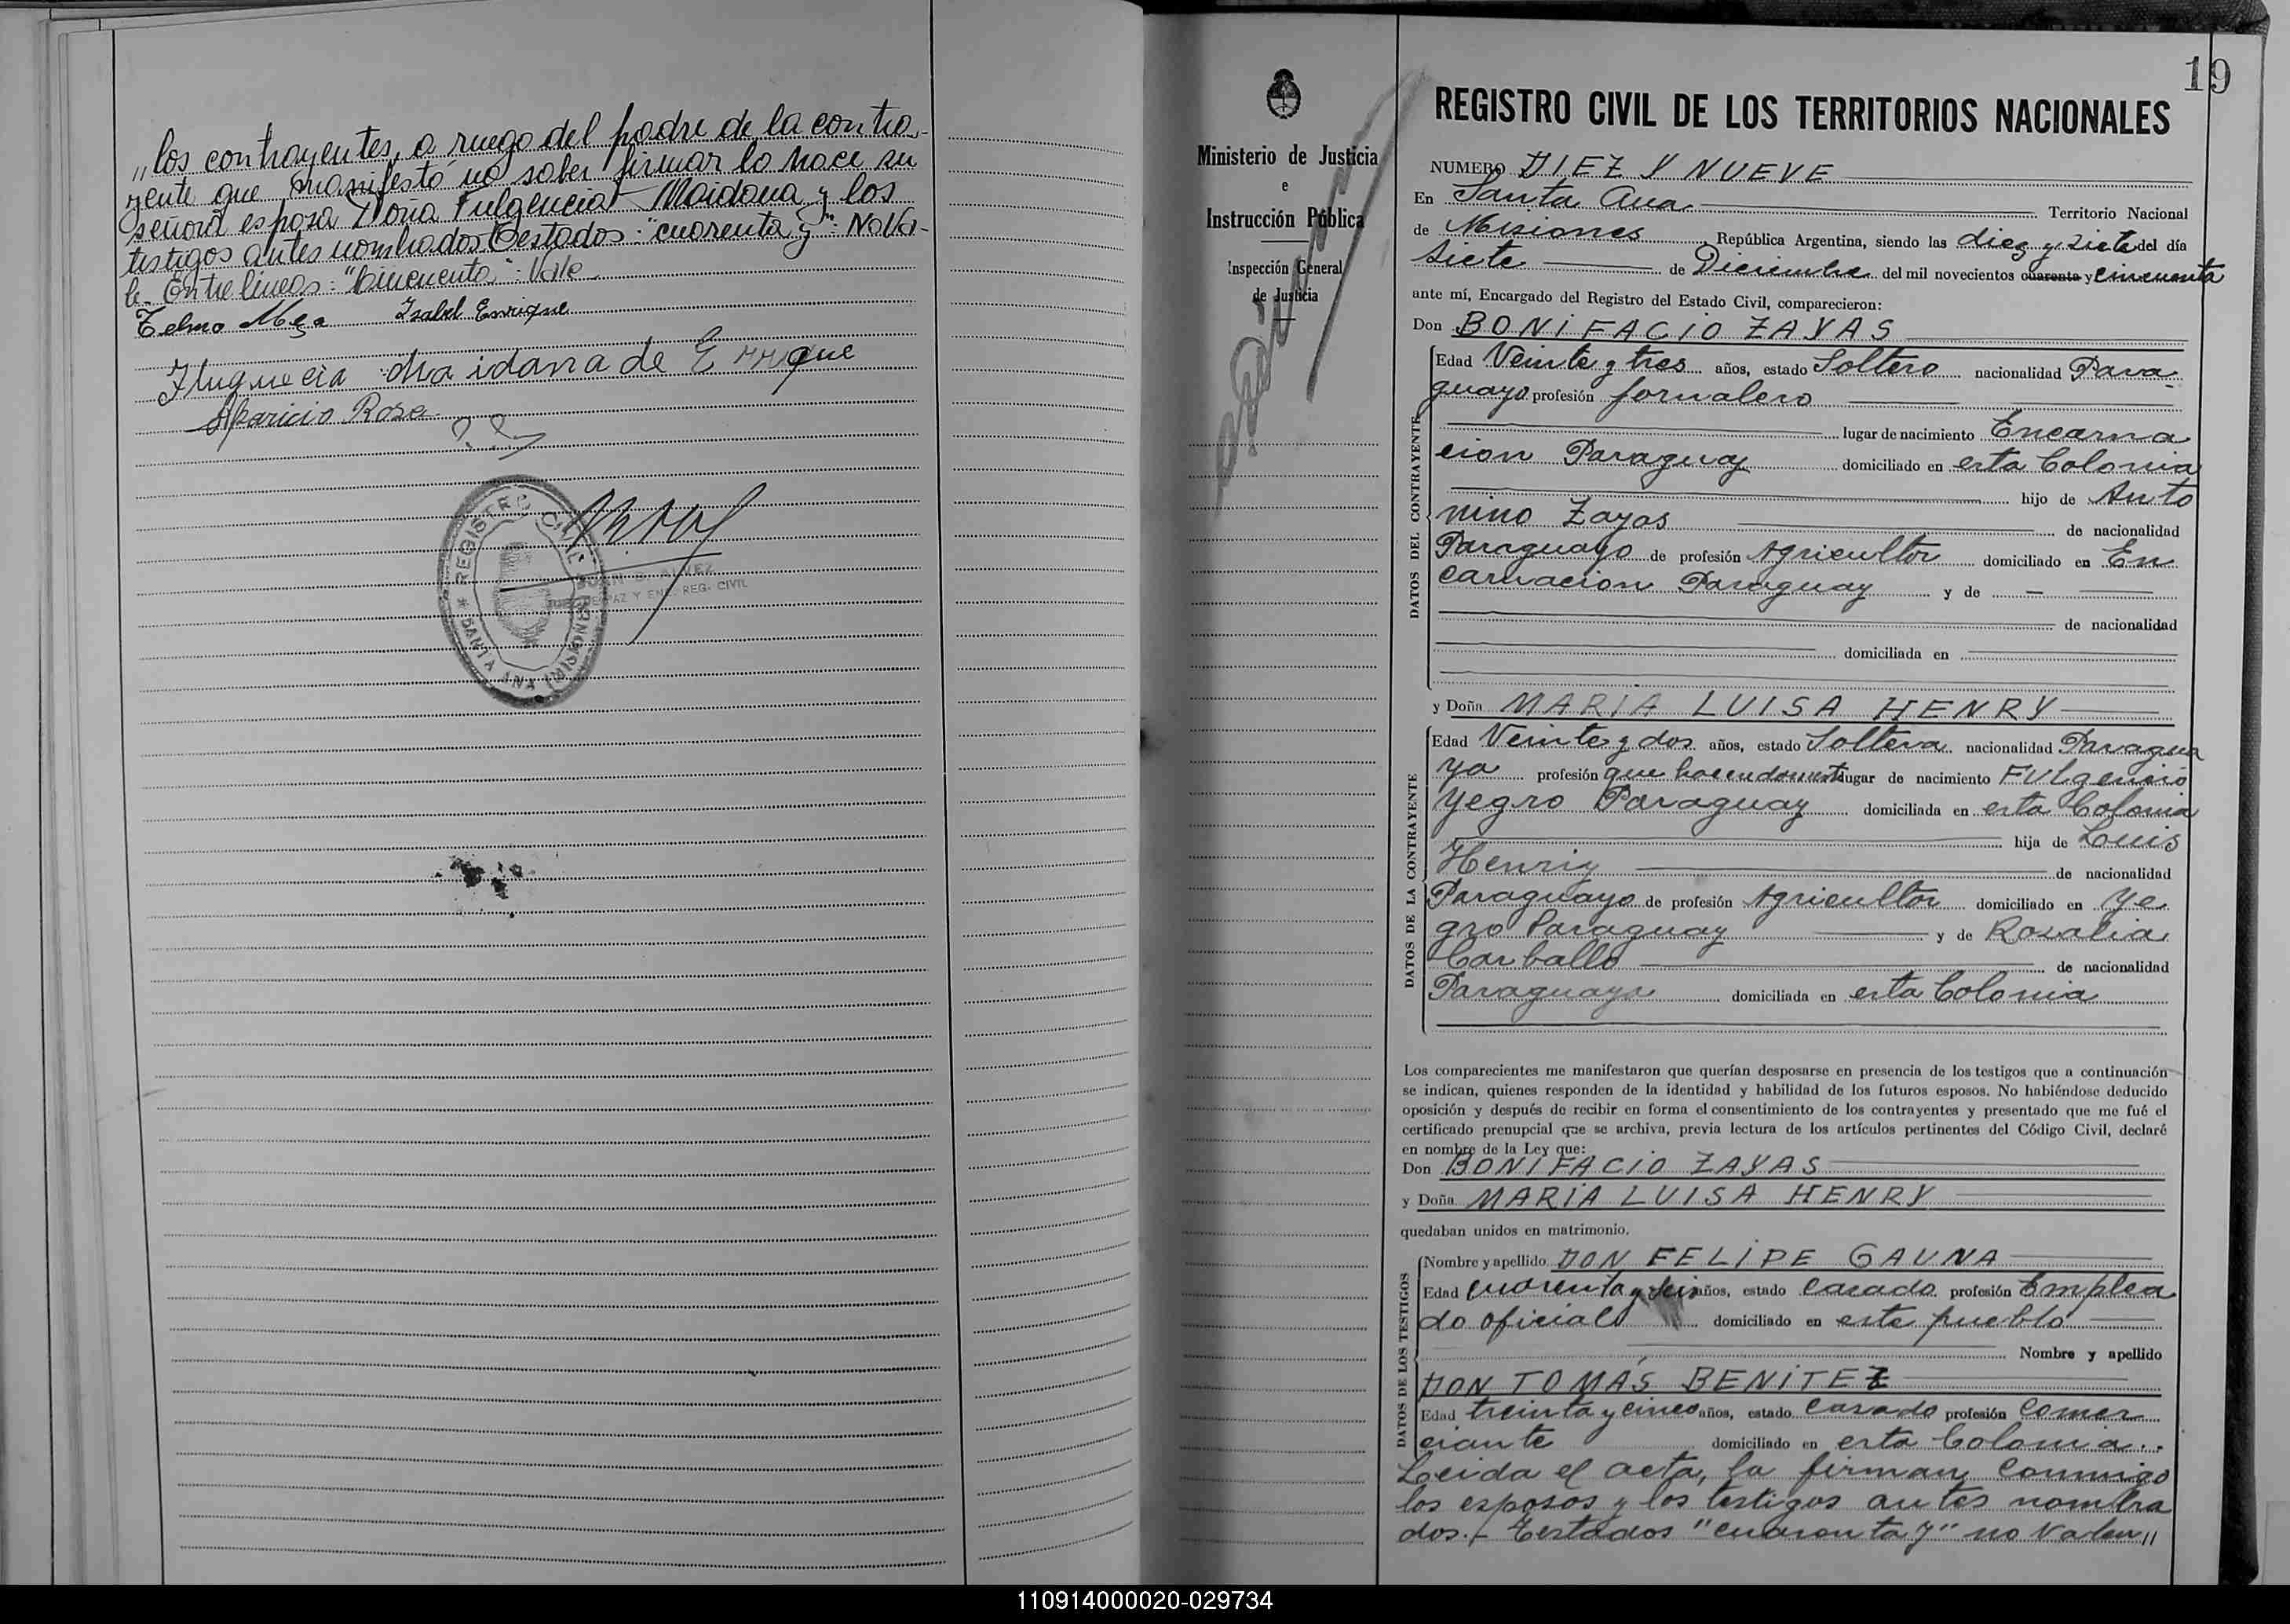 "los contrayentes, a ruego del padre de la contra-
yente que manifestó no saber firmar lo hace su
señora esposa Doña Fulgencia Maidana y los
testigos antes nombrados Testados: "cuarenta y": No Va-
le. Entre líneas: "Cincuenta": Vale
Telmo Meza Isabel Enrique
Flugnecia Maidana de Enrique
Aparicio Rosa
REGISTRO CIVIL
SANTA ANA (MISIONES)
PAZ Y ENC. REG. CIVIL
19
Ministerio de Justicia
e
Instrucción Pública
Inspección General
de Justicia
REGISTRO CIVIL DE LOS TERRITORIOS NACIONALES
NUMERO DIEZ Y NUEVE
En Santa Ana Territorio Nacional
de Misiones República Argentina, siendo las diez y siete del día
siete de Diciembre del mil novecientos cuarenta y cincuenta
ante mí, Encargado del Registro del Estado Civil, comparecieron:
Don BONIFACIO ZAYAS
DATOS DEL CONTRAYENTE
Edad Veinte y tres años, estado Soltero nacionalidad Para-
guayo profesión jornalero
lugar de nacimiento Encarna
cion Paraguay domiciliado en esta Colonia
hijo de Anto
nino Zayas de nacionalidad
Paraguayo de profesión Agricultor domiciliado en En
carnacion Paraguay y de
de nacionalidad
domiciliada en
y Doña MARIA LUISA HENRY
DATOS DE LA CONTRAYENTE
Edad Veinte y dos años, estado Soltera nacionalidad Paragua
ya profesión que hacer domest lugar de nacimiento Fulgencio
Yegro Paraguay domiciliada en esta Colonia
hija de Luis
Henriy de nacionalidad
Paraguayo de profesión Agricultor domiciliado en Ye
gro Paraguay y de Rosalia
Carballo de nacionalidad
Paraguaya domiciliada en esta Colonia
Los comparecientes me manifestaron que querían desposarse en presencia de los testigos que a continuación
se indican, quienes responden de la identidad y habilidad de los futuros esposos. No habiéndose deducido
oposición y después de recibir en forma el consentimiento de los contrayentes y presentado que me fué el
certificado prenupcial que se archiva, previa lectura de los artículos pertinentes del Código Civil, declaré
en nombre de la Ley que:
Don BONIFACIO ZAYAS
y Doña MARIA LUISA HENRY
quedaban unidos en matrimonio.
DATOS DE LOS TESTIGOS
Nombre y apellido DON FELIPE GAUNA
Edad cuarenta y seis años, estado casado profesión Emplea
do oficial domiciliado en este pueblo
Nombre y apellido
DON TOMÁS BENITEZ
Edad treinta y cinco años, estado Casado profesión Comer
ciante domiciliado en esta Colonia..
Leida el acta, la firman conmigo
los esposos y los testigos antes nombra
dos.- Testados "cuarenta y" no valen"
110914000020-029734